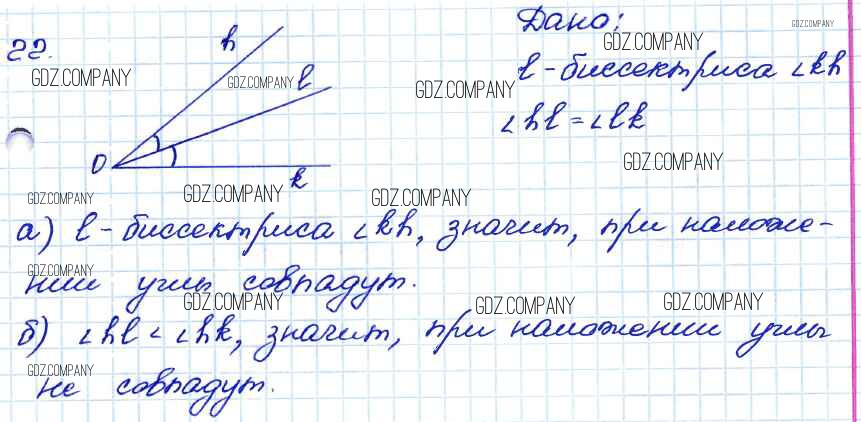 Дано:
22.
h
GDZ.COMPANY
GDZ.COMPANY
l - биссектриса ∠kh
GDZ.COMPANY
GDZ.COMPANY
l
GDZ.COMPANY
∠hl = ∠lk
O
GDZ.COMPANY
k
GDZ.COMPANY
GDZ.COMPANY
GDZ.COMPANY
а) l - биссектриса ∠kh, значит, при наложе-
GDZ.COMPANY
нии углы совпадут.
GDZ.COMPANY
GDZ.COMPANY
GDZ.COMPANY
б) ∠hl < ∠hk, значит, при наложении углы
GDZ.COMPANY
не совпадут.